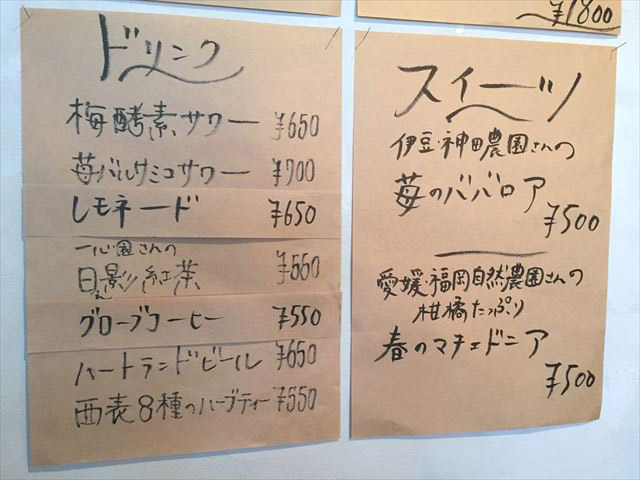 ¥1800
ドリンク
梅酵素サワー ¥650
苺バルサミコサワー ¥700
レモネード ¥650
一心園さんの
日影紅茶 ¥550
グローブコーヒー ¥550
ハートランドビール ¥650
西表8種のハーブティー ¥550
スイーツ
伊豆・神田農園さんの
苺のババロア
¥500
愛媛・福岡自然農園さんの
柑橘たっぷり
春のマチェドニア
¥500